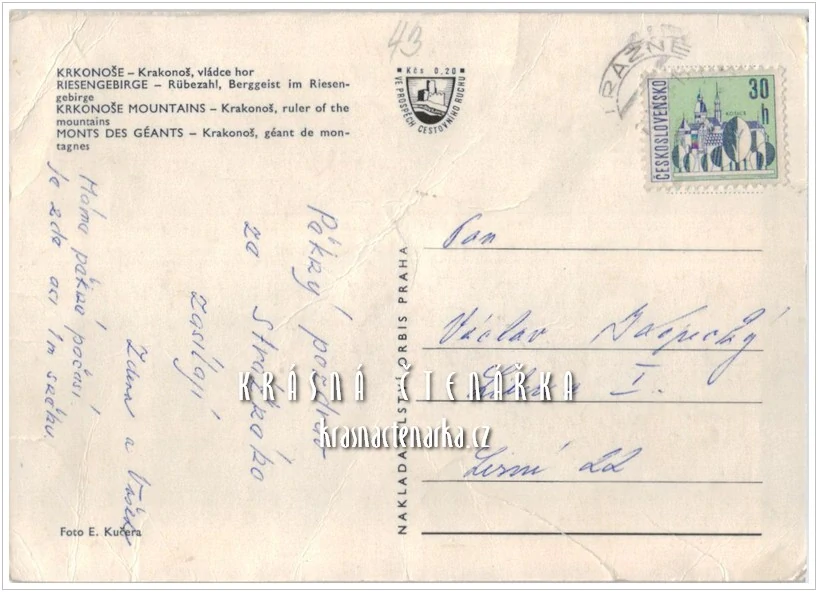 43
KRKONOŠE – Krakonoš, vládce hor
RIESENGEBIRGE – Rübezahl, Berggeist im Riesen-
gebirge
KRKONOŠE MOUNTAINS – Krakonoš, ruler of the
mountains
MONTS DES GÉANTS – Krakonoš, géant de mon-
tagnes
Kčs 0,20
VE PROSPĚCH CESTOVNÍHO RUCHU
RAZNÉ
ČESKOSLOVENSKO
30
h
Pěkný pozdrav
za
zasílají
Zdena a Vašek
Máme pěkné počasí.
Je zde asi 1m sněhu.
NAKLADATELSTVÍ ORBIS PRAHA
Pan
Václav
I.
Lesní 22
KRÁSNÁ ČTENÁŘKA
krasnactenarka.cz
Foto E. Kučera